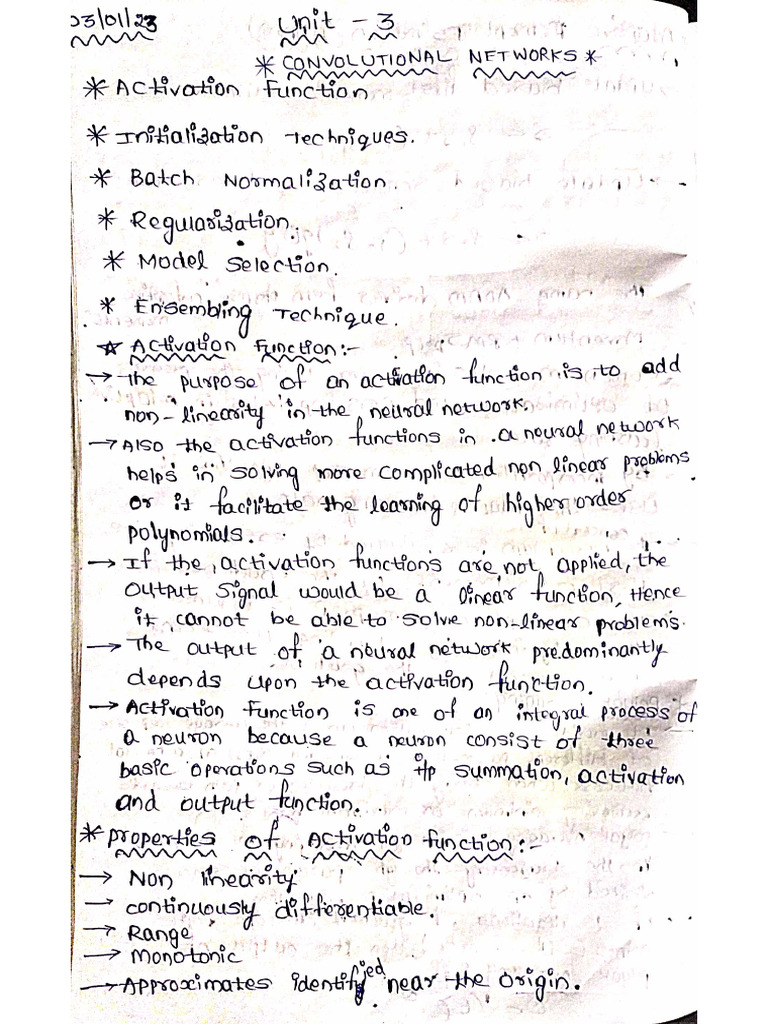 03/01/23 Unit - 3
* CONVOLUTIONAL NETWORKS *
* Activation Function
* Initialization Techniques.
* Batch Normalization.
* Regularization.
* Model Selection.
* Ensembling Technique.
☆ Activation Function:-
→ The purpose of an activation function is to add
non-linearity in the neural network.
→ Also the activation functions in a neural network
helps in solving more complicated non linear problems
or it facilitate the learning of higher order
polynomials.
→ If the activation functions are not applied, the
output signal would be a linear function, Hence
it cannot be able to solve non-linear problems.
→ The output of a neural network predominantly
depends upon the activation function.
→ Activation function is one of an integral process of
a neuron because a neuron consist of three
basic operations such as i/p summation, activation
and output function.
* Properties of Activation function:-
→ Non linearity
→ continuously differentiable.
→ Range
→ Monotonic
→ Approximates identified near the origin.